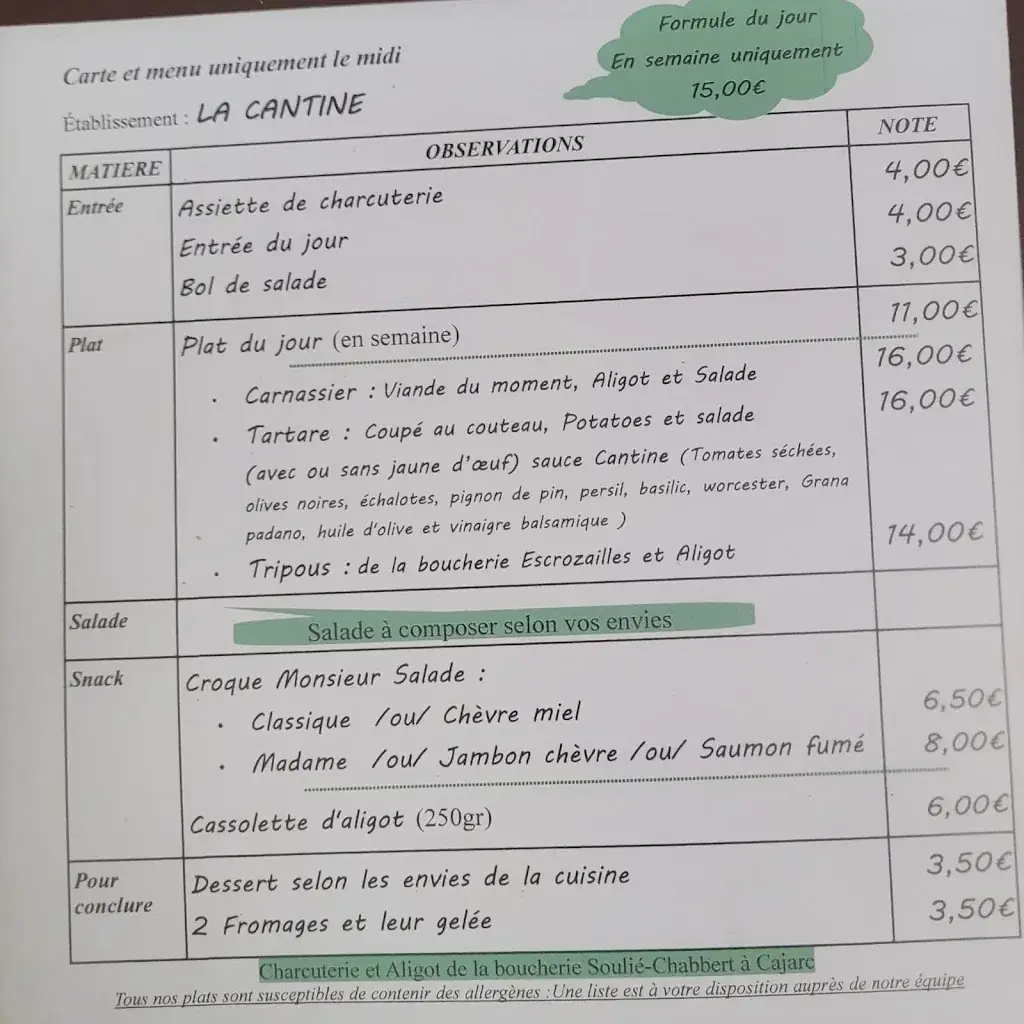 Formule du jour
En semaine uniquement
15,00€
Carte et menu uniquement le midi
Établissement : LA CANTINE
MATIERE OBSERVATIONS NOTE
Entrée Assiette de charcuterie 4,00€
Entrée du jour 4,00€
Bol de salade 3,00€
Plat Plat du jour (en semaine) 11,00€
• Carnassier : Viande du moment, Aligot et Salade 16,00€
• Tartare : Coupé au couteau, Potatoes et salade 16,00€
(avec ou sans jaune d'œuf) sauce Cantine (Tomates séchées,
olives noires, échalotes, pignon de pin, persil, basilic, worcester, Grana
padano, huile d'olive et vinaigre balsamique )
• Tripous : de la boucherie Escrozailles et Aligot 14,00€
Salade Salade à composer selon vos envies
Snack Croque Monsieur Salade :
• Classique /ou/ Chèvre miel 6,50€
• Madame /ou/ Jambon chèvre /ou/ Saumon fumé 8,00€
Cassolette d'aligot (250gr) 6,00€
Pour conclure Dessert selon les envies de la cuisine 3,50€
2 Fromages et leur gelée 3,50€
Charcuterie et Aligot de la boucherie Soulié-Chabbert à Cajarc
Tous nos plats sont susceptibles de contenir des allergènes : Une liste est à votre disposition auprès de notre équipe